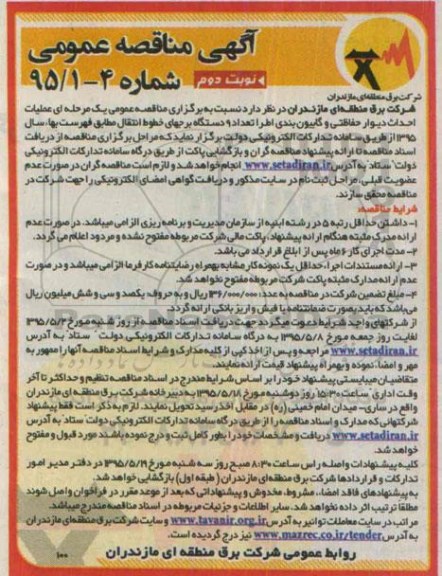 آگهی مناقصه عمومی
نوبت دوم شماره ۴-۹۵/۱
شرکت برق منطقه‌ای مازندران
شرکت برق منطقه‌ای مازندران در نظر دارد نسبت به برگزاری مناقصه عمومی یک مرحله ای عملیات
احداث دیوار حفاظتی و گابیون بندی اطراف تعداد ۹ دستگاه برجهای خطوط انتقال مطابق فهرست بها، سال
۱۳۹۵ از طریق سامانه تدارکات الکترونیکی دولت برگزار نماید که مراحل برگزاری مناقصه از دریافت
اسناد مناقصه تا ارائه پیشنهاد مناقصه گران و بازگشایی پاکت از طریق درگاه سامانه تدارکات الکترونیکی
دولت ستاد به آدرس www.setadiran.ir انجام خواهد شد و لازم است مناقصه گران در صورت عدم
عضویت قبلی، مراحل ثبت نام در سایت مذکور و دریافت گواهی امضای الکترونیکی را جهت شرکت در
مناقصه محقق سازند.
شرایط مناقصه:
۱- داشتن حداقل رتبه ۵ در رشته ابنیه از سازمان مدیریت و برنامه ریزی الزامی میباشد. در صورت عدم
ارائه مدرک مثبته هنگام ارائه پیشنهاد، پاکت مالی شرکت مربوطه مفتوح نشده و مردود اعلام می گردد.
۲- مدت اجرای کار ۶ ماه پس از ابلاغ قرارداد می باشد.
۳- ارائه مستندات اجرا، حداقل یک نمونه کار مشابه بهمراه رضایتنامه کارفرما الزامی میباشد و در صورت
عدم ارائه مدارک مثبته پاکت شرکت مربوطه مفتوح نخواهد شد.
۴- مبلغ تضمین شرکت در مناقصه به عدد: ۱۳۶/۰۰۰/۰۰۰ ریال و به حروف: یکصد و سی و شش میلیون ریال
می‌باشد که باید بصورت ضمانتنامه یا فیش واریز بانکی ارائه گردد.
از شرکتهای واجد شرایط دعوت میگردد جهت دریافت اسناد مناقصه از روز شنبه مورخ ۱۳۹۵/۵/۲
لغایت روز جمعه مورخ ۱۳۹۵/۵/۸ به درگاه سامانه تدارکات الکترونیکی دولت ستاد به آدرس
www.setadiran.ir مراجعه و پس از اخذ کپی از کلیه مدارک و شرایط اسناد مناقصه آنها را ممهور به
مهر و امضا، نموده و بهمراه پیشنهاد قیمت ارائه نمایند.
متقاضیان میبایستی پیشنهاد خود را بر اساس شرایط مندرج در اسناد مناقصه تنظیم و حداکثر تا آخر
وقت اداری ساعت ۱۵:۳۰ روز دوشنبه مورخ ۱۳۹۵/۵/۱۸ به دبیرخانه شرکت برق منطقه ای مازندران
واقع در ساری- میدان امام خمینی (ره) در مقابل اخذ رسید تحویل نمایند. لازم به ذکر است فقط پیشنهاد
شرکتهایی که مدارک و اسناد مناقصه را از طریق درگاه سامانه تدارکات الکترونیکی دولت ستاد به آدرس
www.setadiran.ir دریافت و مشخصات خود را بطور کامل ثبت و درج نموده باشند مورد قبول و مفتوح
خواهد شد.
کلیه پیشنهادات واصله راس ساعت ۸:۳۰ صبح روز سه شنبه مورخ ۱۳۹۵/۵/۱۹ در دفتر مدیر امور
تدارکات و قراردادها شرکت برق منطقه‌ای مازندران (طبقه اول) بازگشایی خواهد شد.
به پیشنهادهای فاقد امضا، مشروط، مخدوش و پیشنهاداتی که بعد از موعد مقرر در فراخوان واصل شوند
مطلقا ترتیب اثر داده نخواهد شد. سایر اطلاعات و جزئیات مربوطه در اسناد مناقصه مندرج میباشد.
مراتب در سایت معاملات توانیر به آدرس www.tavanir.org.ir و سایت شرکت برق منطقه‌ای مازندران
به آدرس www.mazrec.co.ir/tender نیز درج گردیده است.
روابط عمومی شرکت برق منطقه ای مازندران
۱۰۰